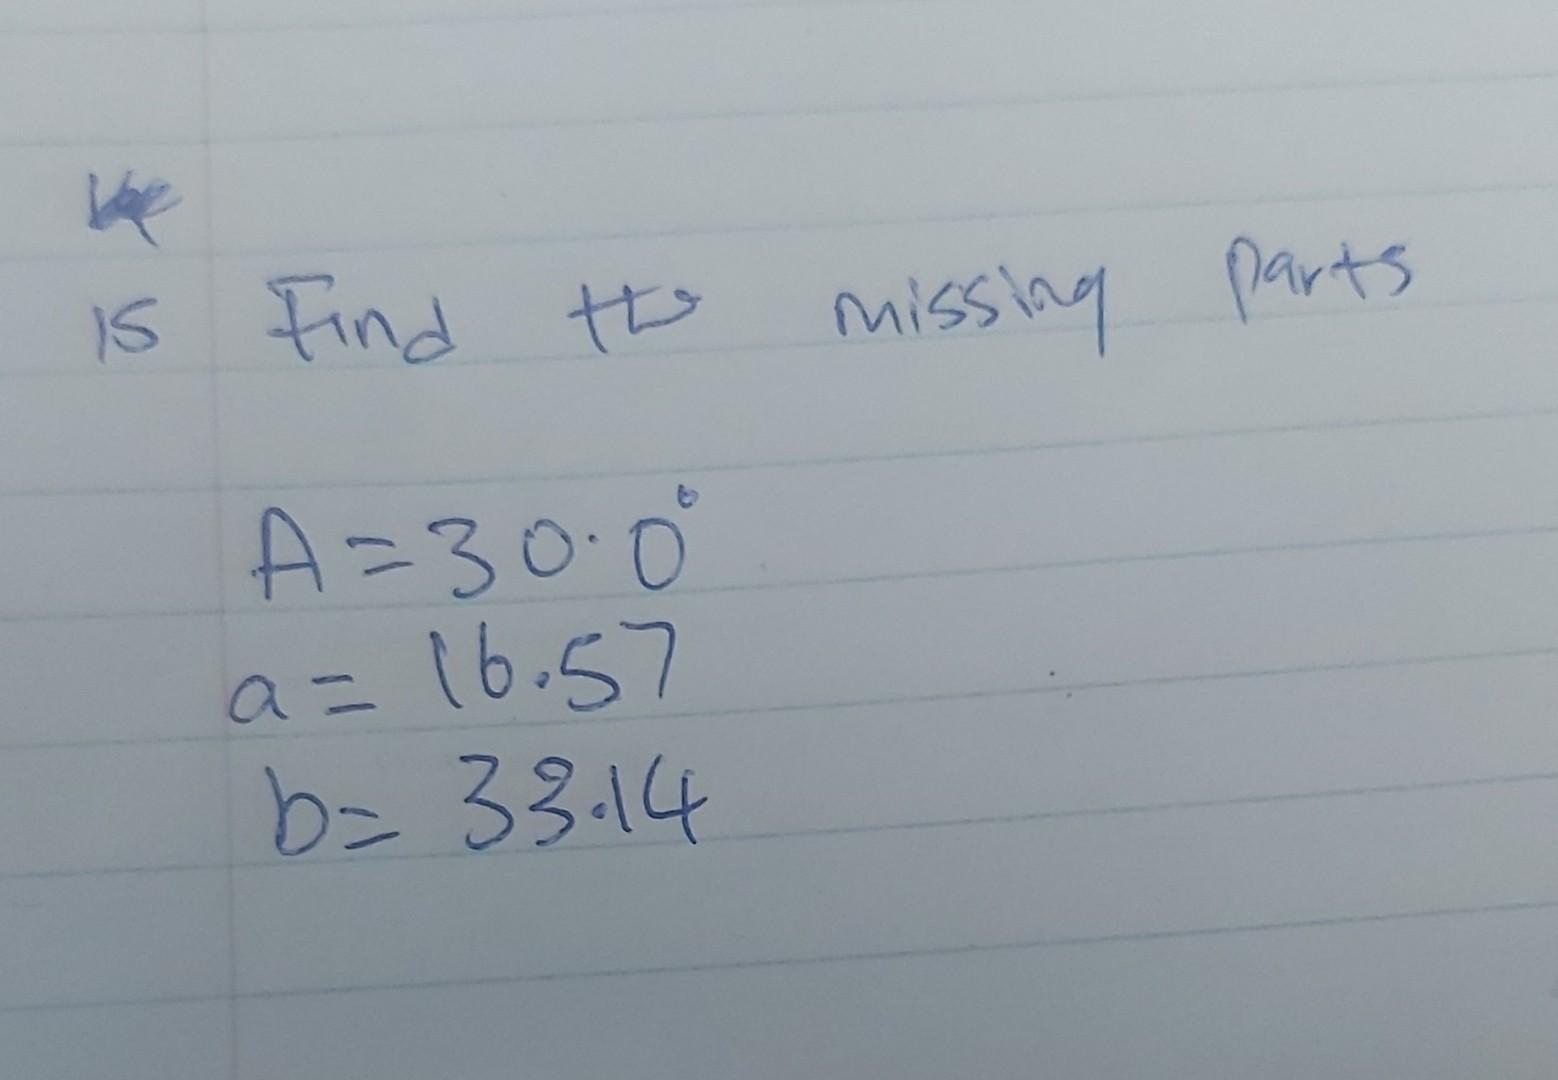 15 Find the missing parts
A = 30.0°
a = 16.57
b = 33.14